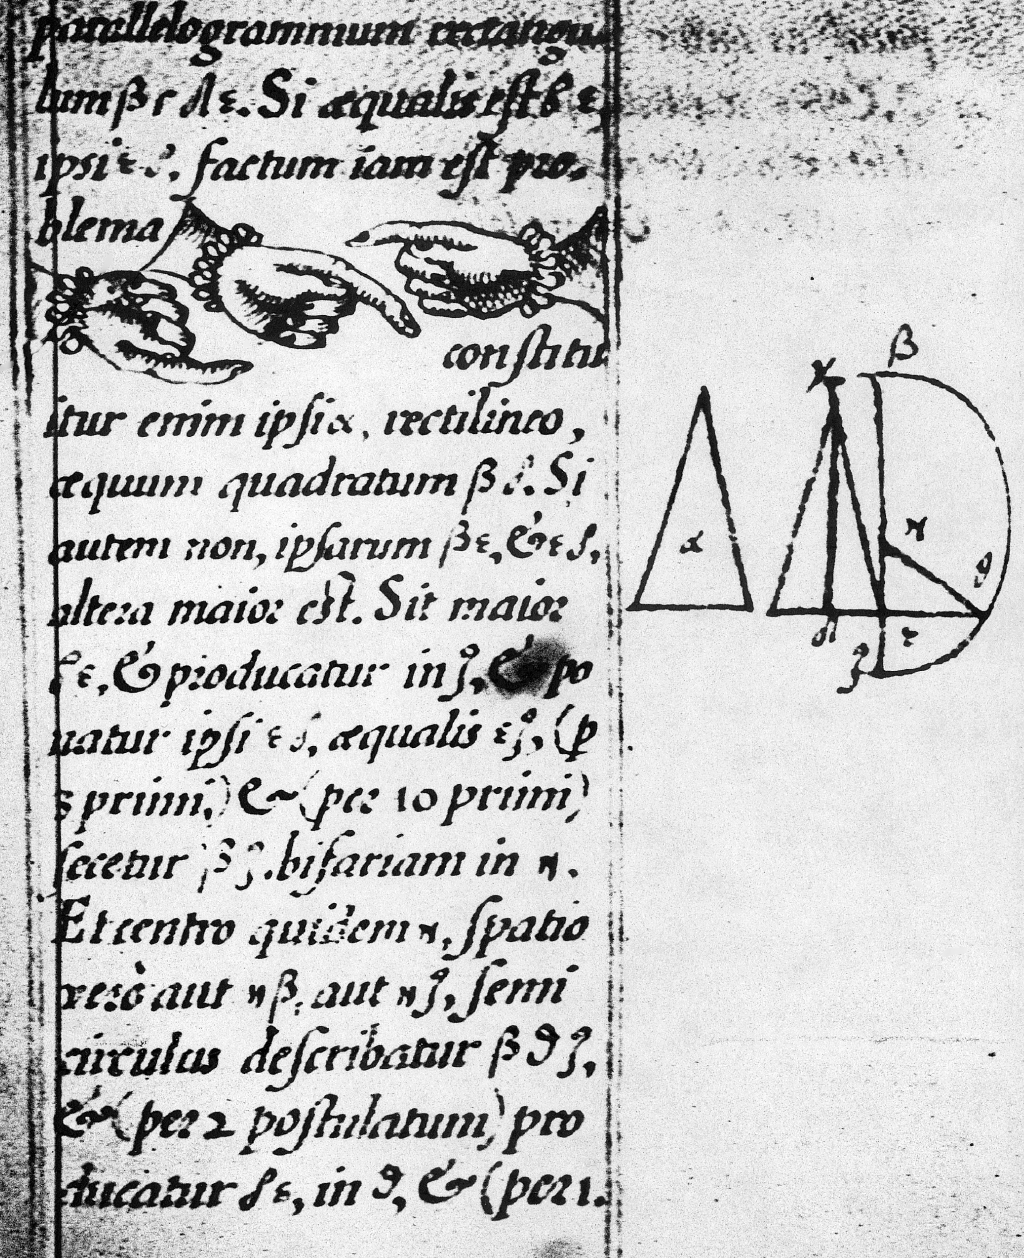 parallelogrammum rectangu
lum βγδε. Si æqualis est β ε
ipsi ε δ. factum iam est pro-
blema
constitu
itur enim ipsi α, rectilineo,
æquum quadratum β δ. Si
autem non, ipsarum β ε, & ε δ,
altera maior est. Sit maior
β ε, & producatur in ζ, & po
natur ipsi ε δ, æqualis ε ζ, (p
3 primi,) & (per 10 primi)
secetur β ζ. bifariam in η.
Et centro quidem η, spatio
verò aut η β, aut η ζ, semi
circulus describatur β θ ζ,
& (per 2 postulatum) pro
ducatur δ ε, in θ, & (per 1.
β
γ
η
α
θ
δ
ε
ζ